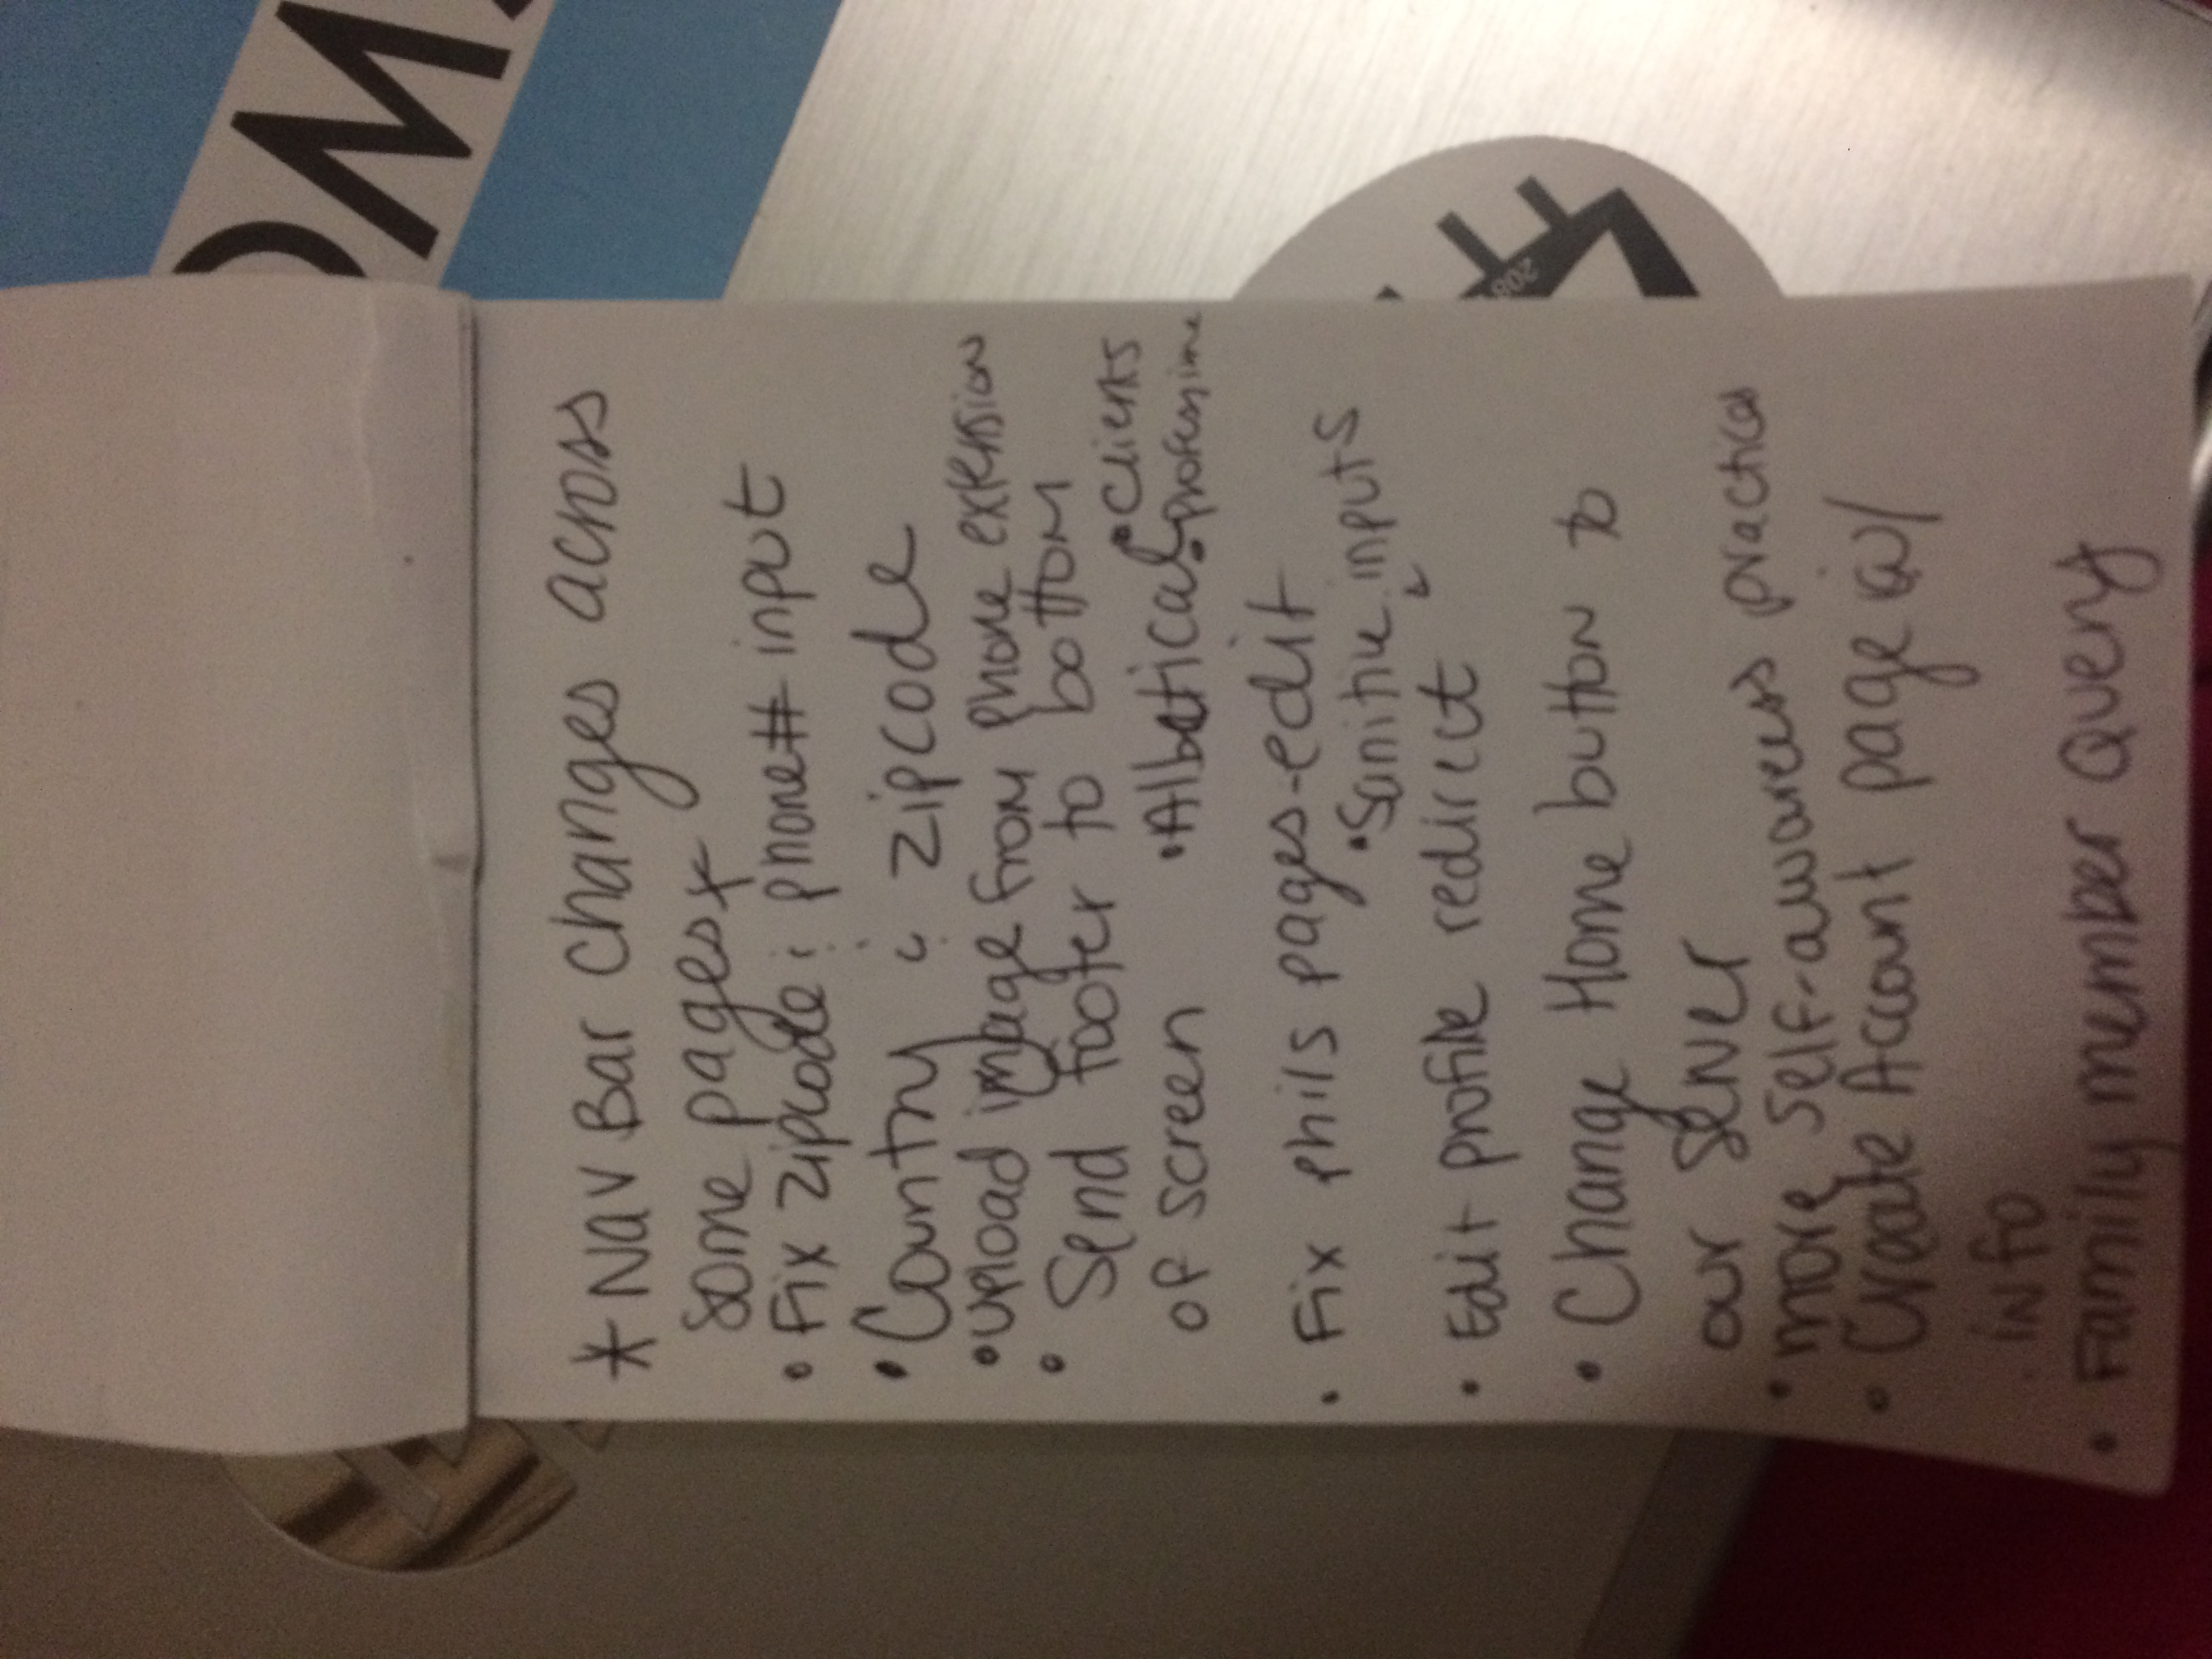 * Nav Bar changes across
some pages *
• Fix zipcode & phone# input
• Country & zipcode
• upload image from phone extension
• Send footer to bottom
of screen
• Albetical
• Clients
• Professiona
• Fix phils pages-edit
• inputs
• Edit profile redirect
• Change Home button to
our server
• more self-awareness practices
• Create Account page w/
info
• Family member Query
OM
208